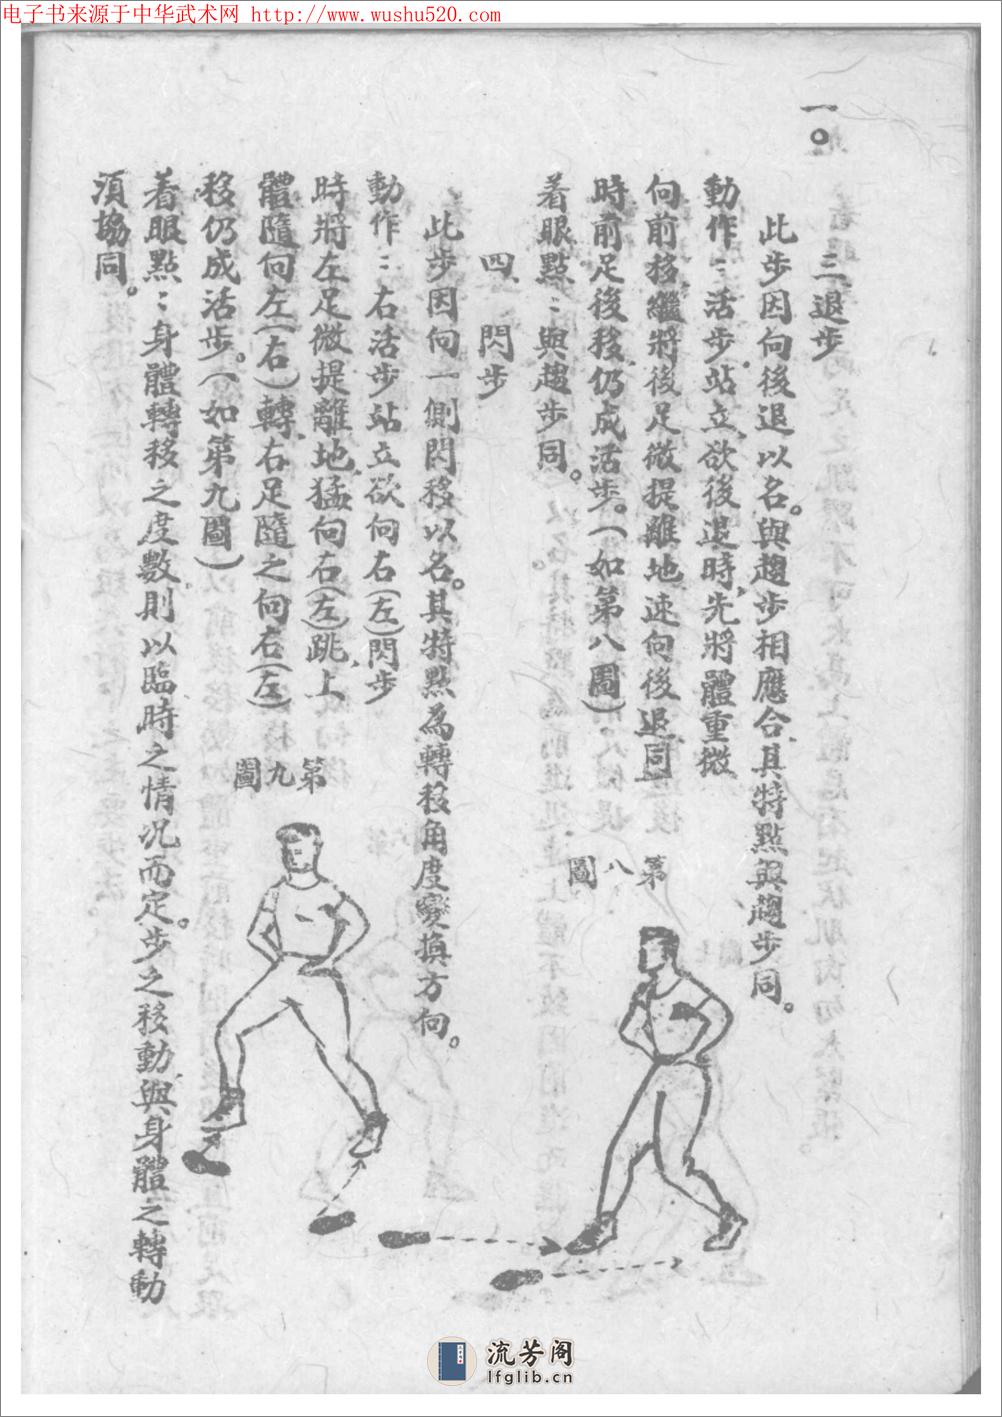 电子书来源于中华武术网 http://www.wushu520.com
一〇
三、退步
此步因向後退以名。與趨步相應合、其特點與趨步同。
動作：活步站立、欲後退時、先將體重微
向前移、繼將後足微提離地、速向後退、同
時前足後移、仍成活步。（如第八圖）
着眼點：與趨步同。
四、閃步
此步因向一側閃移以名。其特點為轉移角度變換方向。
動作：右活步站立、欲向右（左）閃步
時將左足微提離地、猛向右（左）跳、上
體隨向左（右）轉、右足隨之向右（左）
移、仍成活步。（如第九圖）
着眼點：身體轉移之度數、則以臨時之情況而定。步之移動與身體之轉動
須協同。
第八圖
第九圖
流芳阁
lfglib.cn